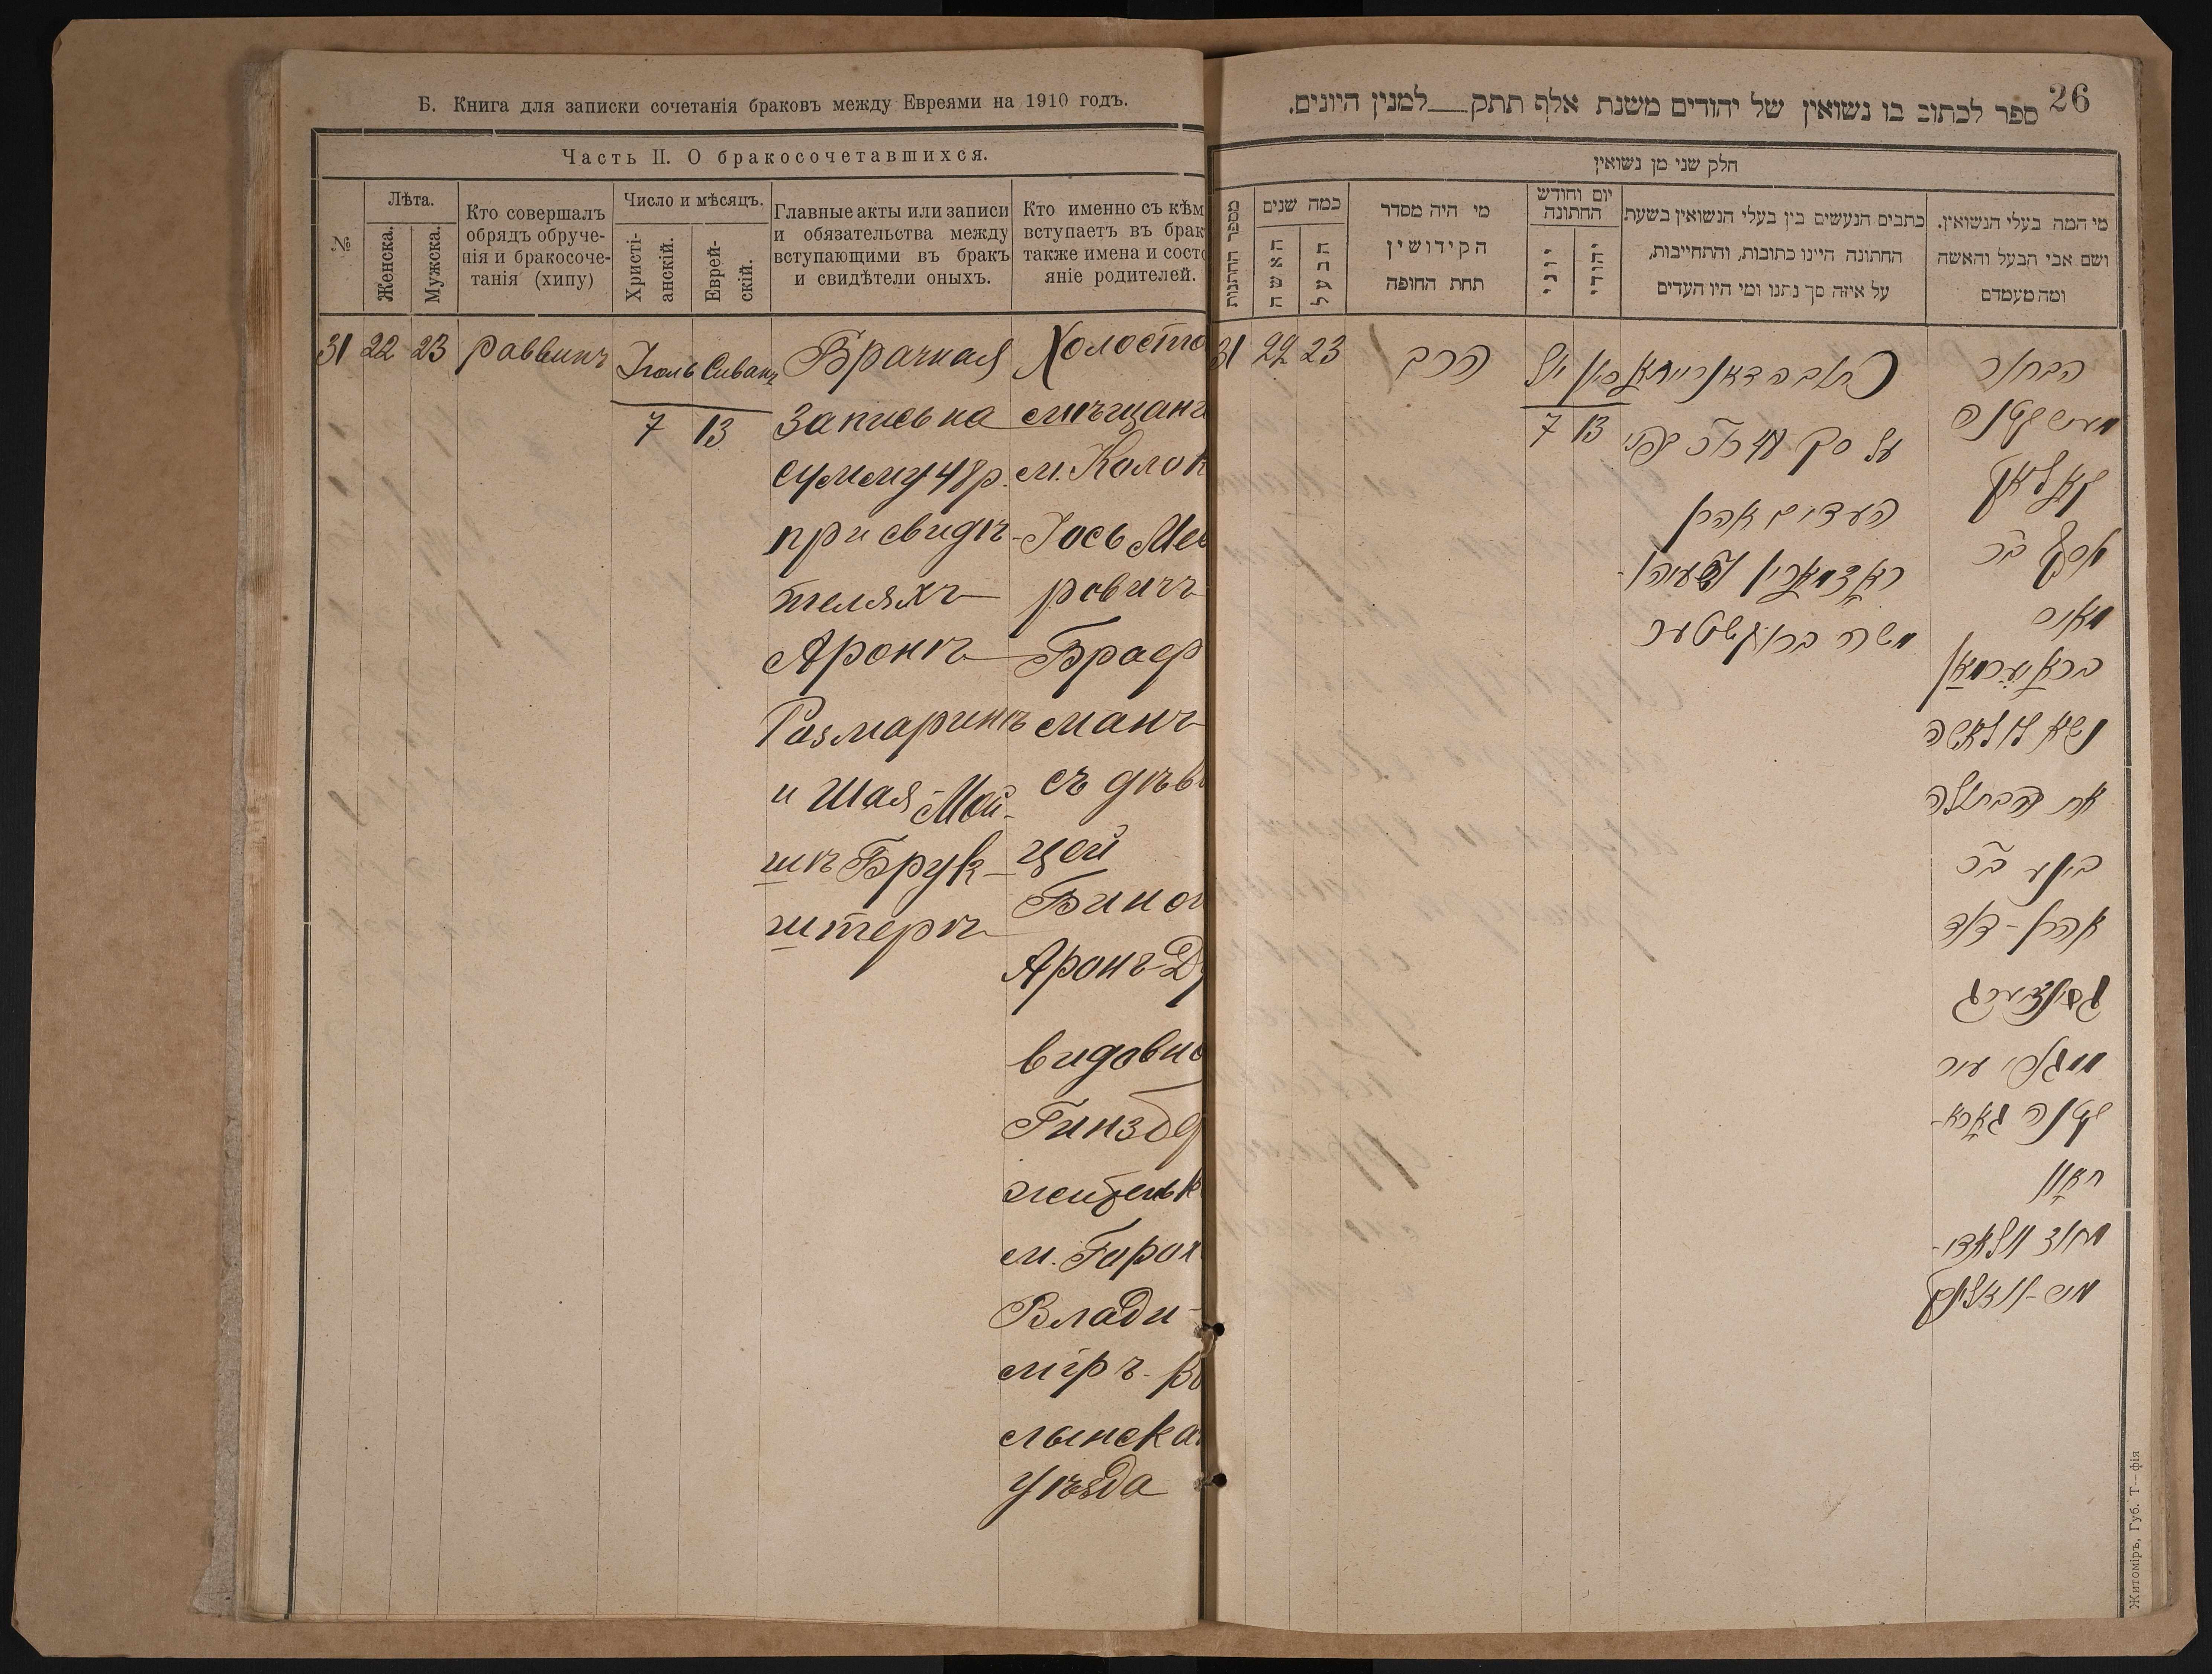 Б. Книга для записки сочетанія браковъ между Евреями на 1910 годъ.
Часть II. О бракосочетавшихся.
№
Лѣта.
Женска.
Мужска.
Кто совершалъ
обрядъ обруче-
нія и бракосоче-
танія (хипу)
Число и мѣсяцъ.
Христі-
анскій.
Еврей-
скій.
Главные акты или записи
и обязательства между
вступающими въ бракъ
и свидѣтели оныхъ.
Кто именно съ кѣм
вступаетъ въ брак
также имена и сост
яніе родителей.
31
22
23
раввинъ
Іюль
7
Сиванъ
13
Брачная
запись на
сумму 48 р.
при свидѣ-
теляхъ
Аронѣ
Розмаринѣ
и Шая Мой-
шѣ Брук-
штерѣ
Холосто
мѣщани
м. Колок
Іось Меѣ
ровичъ
Браер
манъ
съ дѣви
цей
Бино
Аронъ-Д
видовно
Гинзбер
жительк
м. Горох
Влади-
міръ-Во
лынска
уѣзда
26
ספר לכתוב בו נשואין של יהודים משנת אלף תתק__למנין היונים.
חלק שני מן נשואין
מספר החתונות
כמה שנים
האשה
הבעל
מי היה מסדר
הקידושין
תחת החופה
יום וחודש
החתונה
יוני
יהודי
כתבים הנעשים בין בעלי הנשואין בשעת
החתונה היינו כתובות, והתחייבות,
על איזה סך נתנו ומי היו העדים
מי המה בעלי הנשואין.
ושם אבי הבעל והאשה
ומה מעמדם
31
22
23
הרב
7
13
כתובה דאורייתא
על סך 48
העדים אהרן
משה ברוקשטער
הבחור
יוסף בר
מאיר
בראַווערמאַן
נשא לו לאשה
את הבתולה
בינע בר
אהרן-דוד
גינזבורג
עיר
קטנה גאָראָ-
חאָוו
מחוז וולאדי-
מיר-וואלינסק
Житоміръ, Губ. Т—фія